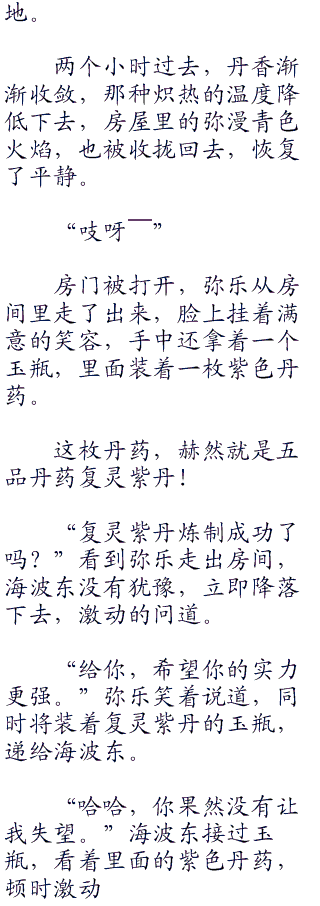 地。
两个小时过去，丹香渐
渐收敛，那种炽热的温度降
低下去，房屋里的弥漫青色
火焰，也被收拢回去，恢复
了平静。
“吱呀一”
房门被打开，弥乐从房
间里走了出来，脸上挂着满
意的笑容，手中还拿着一个
玉瓶，里面装着一枚紫色丹
药。
这枚丹药，赫然就是五
品丹药复灵紫丹！
“复灵紫丹炼制成功了
吗？”看到弥乐走出房间，
海波东没有犹豫，立即降落
下去，激动的问道。
“给你，希望你的实力
更强。”弥乐笑着说道，同
时将装着复灵紫丹的玉瓶，
递给海波东。
“哈哈，你果然没有让
我失望。”海波东接过玉
瓶，看着里面的紫色丹药，
顿时激动